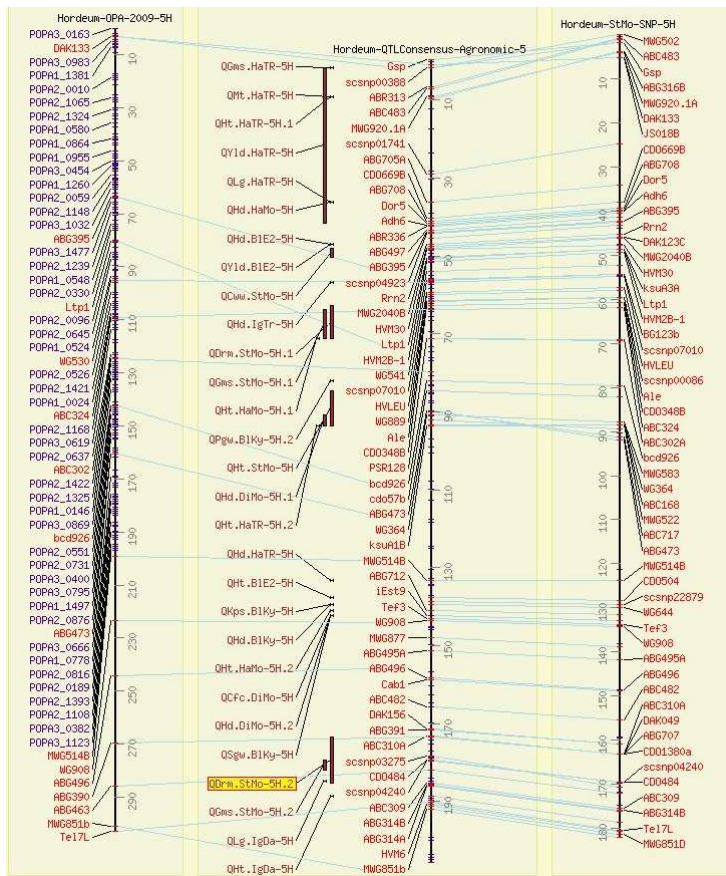 Hordeum-OPA-2009-5H
POPA3_0163
DAK133
POPA3_0983
POPA1_1381
POPA2_0010
POPA2_1065
POPA2_1324
POPA1_0580
POPA1_0864
POPA1_0955
POPA3_0454
POPA1_1260
POPA2_0059
POPA2_1148
POPA3_1032
ABG395
POPA3_1477
POPA2_1239
POPA1_0548
POPA2_0330
Ltp1
POPA2_0096
POPA2_0645
POPA1_0524
WG530
POPA2_0526
POPA2_1421
POPA1_0024
ABC324
POPA2_1168
POPA3_0619
POPA2_0637
ABC302
POPA2_1422
POPA2_1325
POPA1_0146
POPA3_0869
bcd926
POPA2_0551
POPA2_0731
POPA3_0400
POPA3_0795
POPA1_1497
POPA2_0876
ABG473
POPA3_0666
POPA1_0778
POPA2_0816
POPA2_0189
POPA2_1393
POPA2_1108
POPA3_0382
POPA3_1123
MWG514B
WG908
ABG496
ABG390
ABG463
MWG851b
Tel7L
10
30
50
70
90
110
130
150
170
190
210
230
250
270
290
Hordeum-QTLConsensus-Agronomic-5
QGms.HaTR-5H
QMt.HaTR-5H
QHt.HaTR-5H.1
QYld.HaTR-5H
QLg.HaTR-5H
QHd.HaMo-5H
QHd.BlE2-5H
QYld.BlE2-5H
QCww.StMo-5H
QHd.IgTr-5H
QDrm.StMo-5H.1
QGms.StMo-5H.1
QHt.HaMo-5H.1
QPgw.BlKy-5H.2
QHt.StMo-5H
QHd.DiMo-5H.1
QHt.HaTR-5H.2
QHd.HaTR-5H
QHt.BlE2-5H
QKps.BlKy-5H
QHd.BlKy-5H
QHt.HaMo-5H.2
QCfc.DiMo-5H
QHd.DiMo-5H.2
QSgw.BlKy-5H
QDrm.StMo-5H.2
QGms.StMo-5H.2
QLg.IgDa-5H
QHt.IgDa-5H
Gsp
scsnp00388
ABR313
ABC483
MWG920.1A
scsnp01741
ABG705A
CDO669B
ABG708
Dor5
Adh6
ABR336
ABG497
ABG395
scsnp04923
Rrn2
MWG2040B
HVM30
Ltp1
HVM2B-1
WG541
scsnp07010
HVLEU
WG889
Ale
CDO348B
PSR128
bcd926
cdo57b
ABG473
WG364
ksuA1B
MWG514B
ABG712
iEst9
Tef3
WG908
MWG877
ABG495A
ABG496
Cab1
ABC482
DAK156
ABG391
ABC310A
scsnp03275
CDO484
scsnp04240
ABC309
ABG314B
ABG314A
HVM6
MWG851b
10
30
50
70
90
110
130
150
170
190
Hordeum-StMo-SNP-5H
MWG502
ABC483
Gsp
ABG316B
MWG920.1A
DAK133
JS018B
CDO669B
ABG708
Dor5
Adh6
ABG395
Rrn2
DAK123C
MWG2040B
HVM30
ksuA3A
Ltp1
HVM2B-1
BG123b
scsnp07010
HVLEU
scsnp00086
Ale
CDO348B
ABC324
ABC302A
bcd926
MWG583
WG364
ABC168
MWG522
ABC717
ABG473
MWG514B
CDO504
scsnp22879
WG644
Tef3
WG908
ABG495A
ABG496
ABC482
ABC310A
DAK049
ABG707
CDO1380a
scsnp04240
CDO484
ABC309
ABG314B
Tel7L
MWG851D
10
20
30
40
50
60
70
80
90
100
110
120
130
140
150
160
170
180